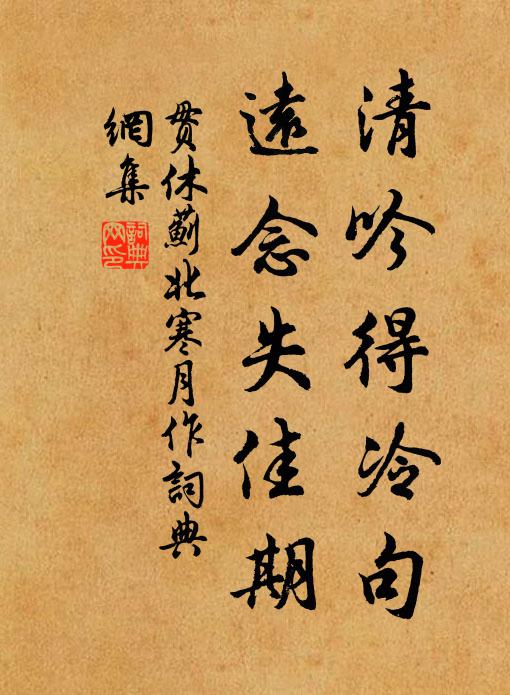 清吟得冷句
遠念失佳期
贯休蓟北寒月作詞典
網集
詞典
网印